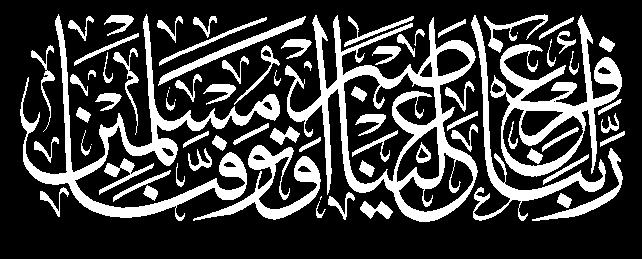 رَبَّنَا أَفْرِغْ عَلَيْنَا صَبْرًا وَتَوَفَّنَا مُسْلِمِينَ